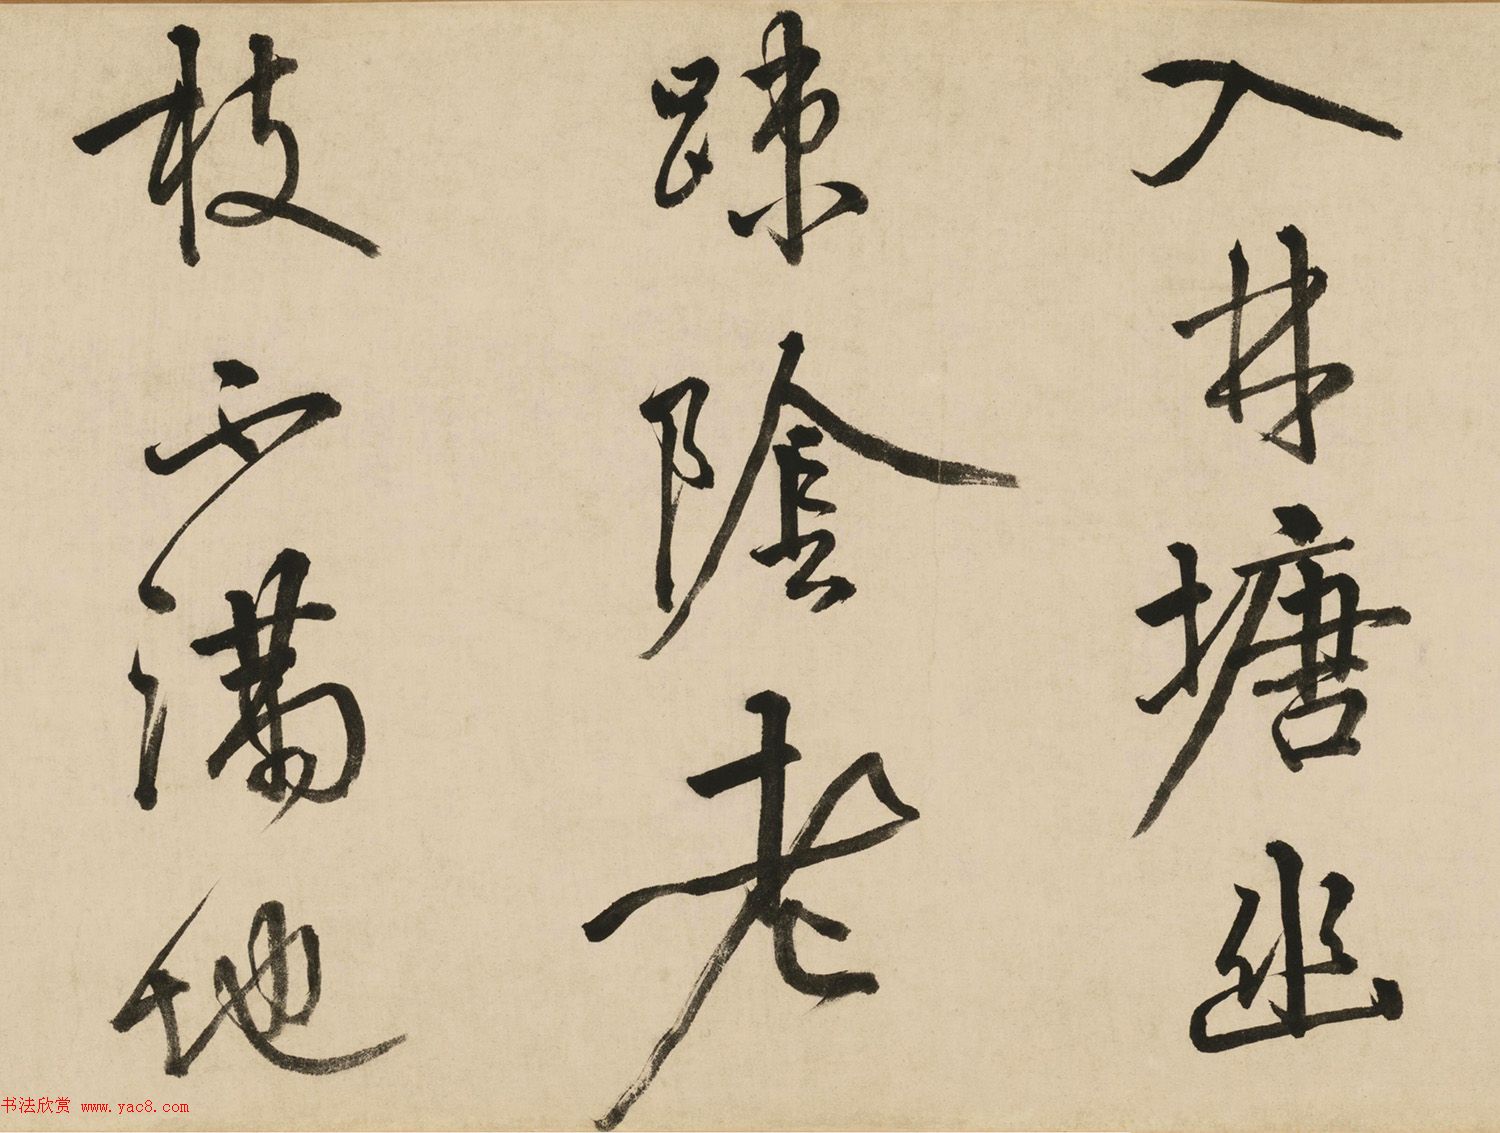 入林塘幽
踈陰老
枝不滿地
书法欣赏 www.yac8.com